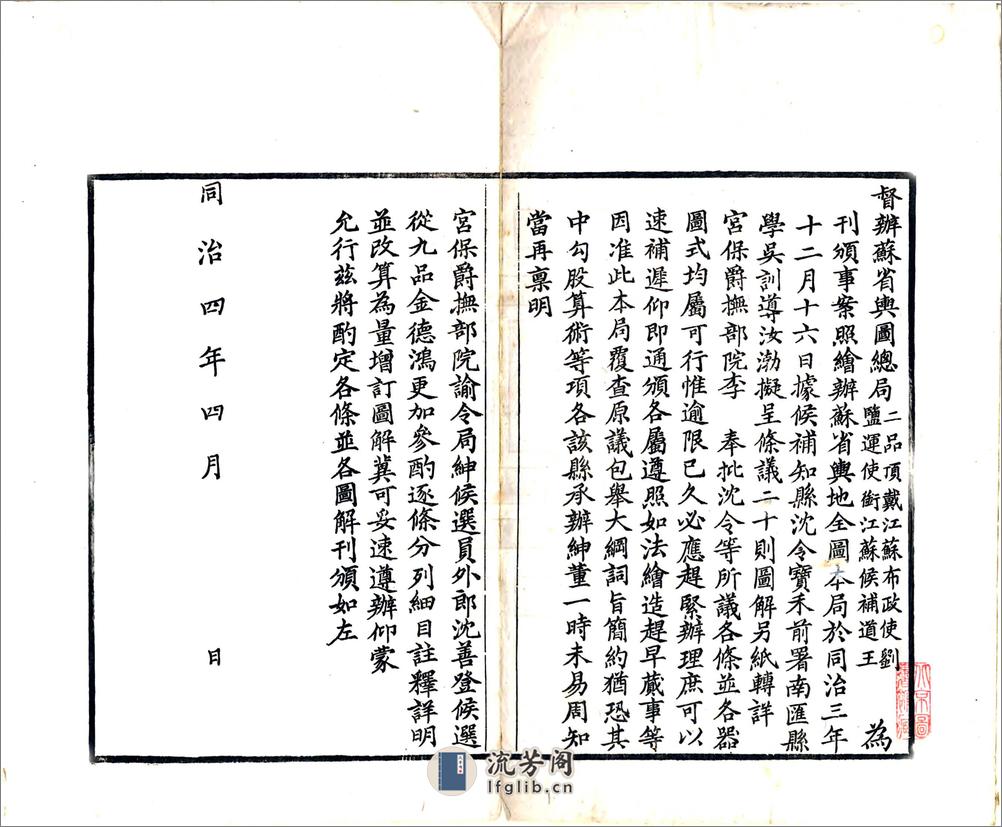 督辦蘇省輿圖總局二品頂戴江蘇布政使劉鹽運使銜江蘇候補道王為
刊頒事案照繪辦蘇省輿地全圖本局於同治三年
十二月十六日據候補知縣沈令寶禾前署南匯縣
學吳訓導汝渤擬呈條議二十則圖解另紙轉詳
宮保爵撫部院李 奉批沈令等所議各條並各器
圖式均屬可行惟逾限已久必應趕緊辦理庶可以
速補遲仰即通頒各屬遵照如法繪造趕早蕆事等
因准此本局覆查原議包舉大綱詞旨簡約猶恐其
中勾股算術等項各該縣承辦紳董一時未易周知
當再稟明
宮保爵撫部院諭令局紳候選員外郎沈善登候選
從九品金德鴻更加參酌逐條分列細目註釋詳明
並改算為量增訂圖解冀可妥速遵辦仰蒙
允行茲將酌定各條並各圖解刊頒如左
同治四年四月 日
流芳閣
lfglib.cn